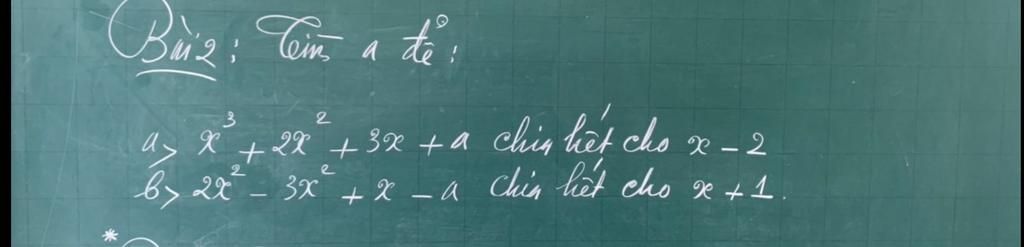 Bài 2: Tìm a để:
a> x³ + 2x² + 3x + a chia hết cho x - 2
b> 2x² - 3x² + x - a chia hết cho x + 1.
*